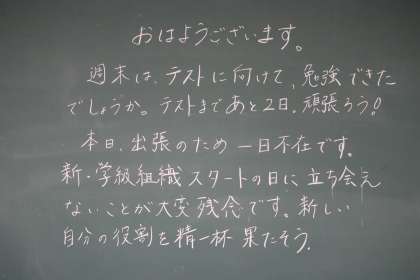 おはようございます。
週末は、テストに向けて、勉強できた
でしょうか。テストまであと2日、頑張ろう!
本日、出張のため一日不在です。
新・学級組織スタートの日に立ち会え
ないことが大変残念です。新しい
自分の役割を精一杯果たそう。